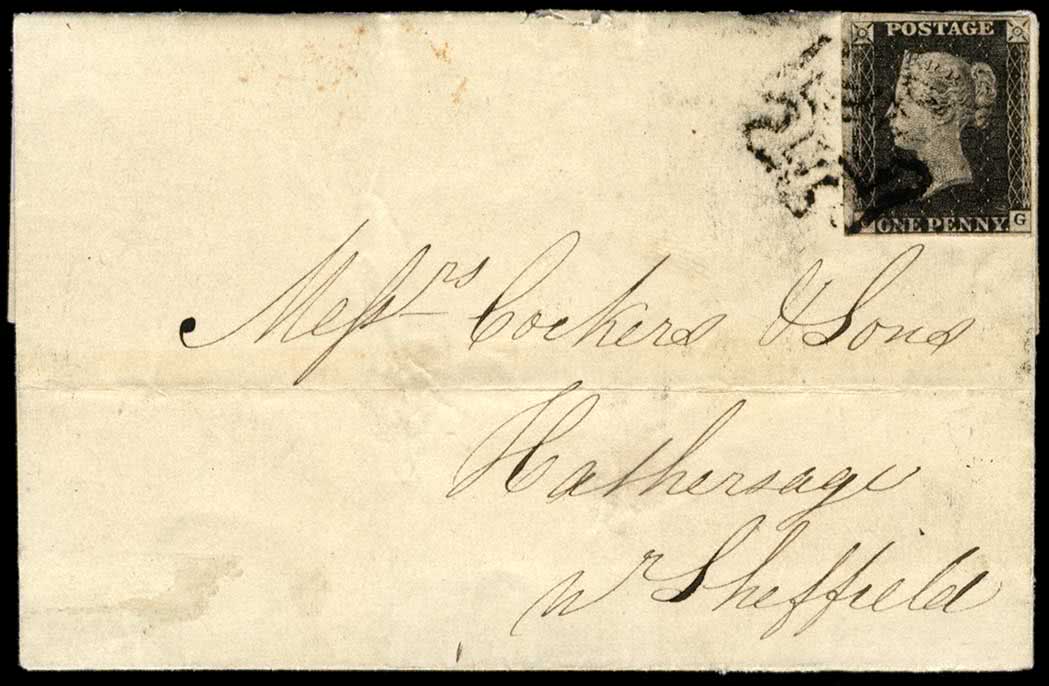 POSTAGE
ONE PENNY.
G
Messrs Cockers & Sons
Hathersage
nr Sheffield